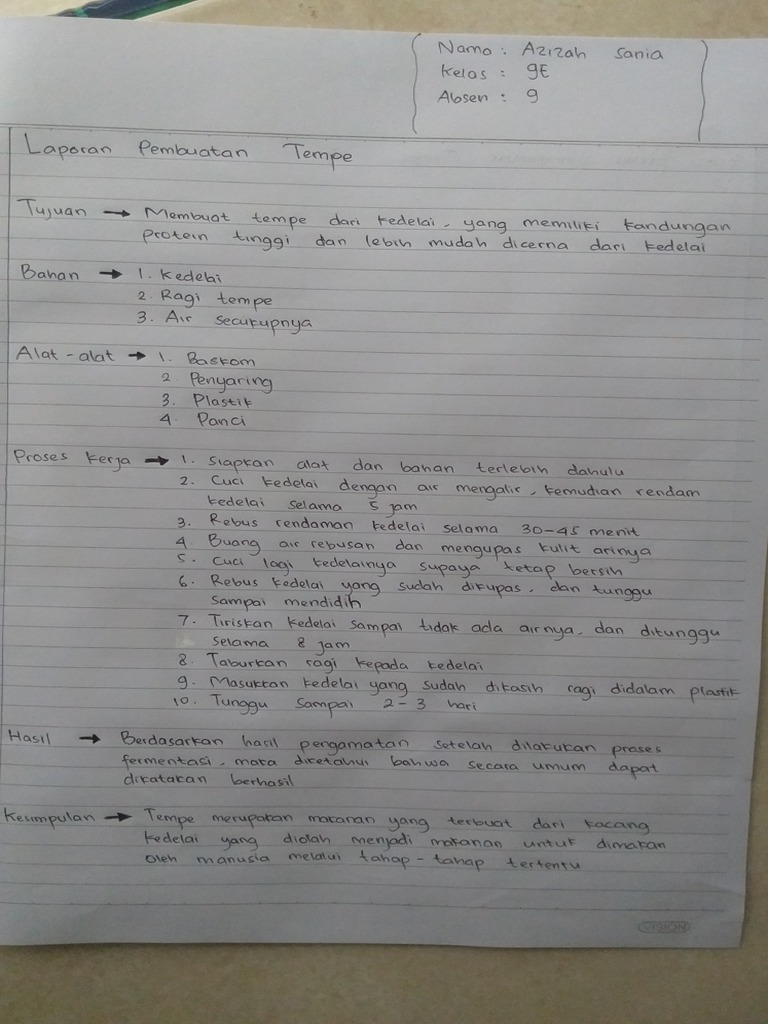 Nama : Azizah Sania
Kelas : 9E
Absen : 9
Laporan Pembuatan Tempe
Tujuan → Membuat tempe dari kedelai, yang memiliki kandungan
protein tinggi dan lebih mudah dicerna dari kedelai
Bahan → 1. Kedelai
2. Ragi tempe
3. Air secukupnya
Alat-alat → 1. Baskom
2. Penyaring
3. Plastik
4. Panci
Proses Kerja → 1. Siapkan alat dan bahan terlebih dahulu
2. Cuci kedelai dengan air mengalir, kemudian rendam
kedelai selama 5 jam
3. Rebus rendaman kedelai selama 30-45 menit
4. Buang air rebusan dan mengupas kulit arinya
5. Cuci lagi kedelainya supaya tetap bersih
6. Rebus kedelai yang sudah dikupas, dan tunggu
sampai mendidih
7. Tiriskan kedelai sampai tidak ada airnya, dan ditunggu
selama 8 jam
8. Taburkan ragi kepada kedelai
9. Masukkan kedelai yang sudah dikasih ragi didalam plastik
10. Tunggu sampai 2-3 hari
Hasil → Berdasarkan hasil pengamatan setelah dilakukan proses
fermentasi, maka diketahui bahwa secara umum dapat
dikatakan berhasil
Kesimpulan → Tempe merupakan makanan yang terbuat dari kacang
kedelai yang diolah menjadi makanan untuk dimakan
oleh manusia melalui tahap-tahap tertentu
VISION